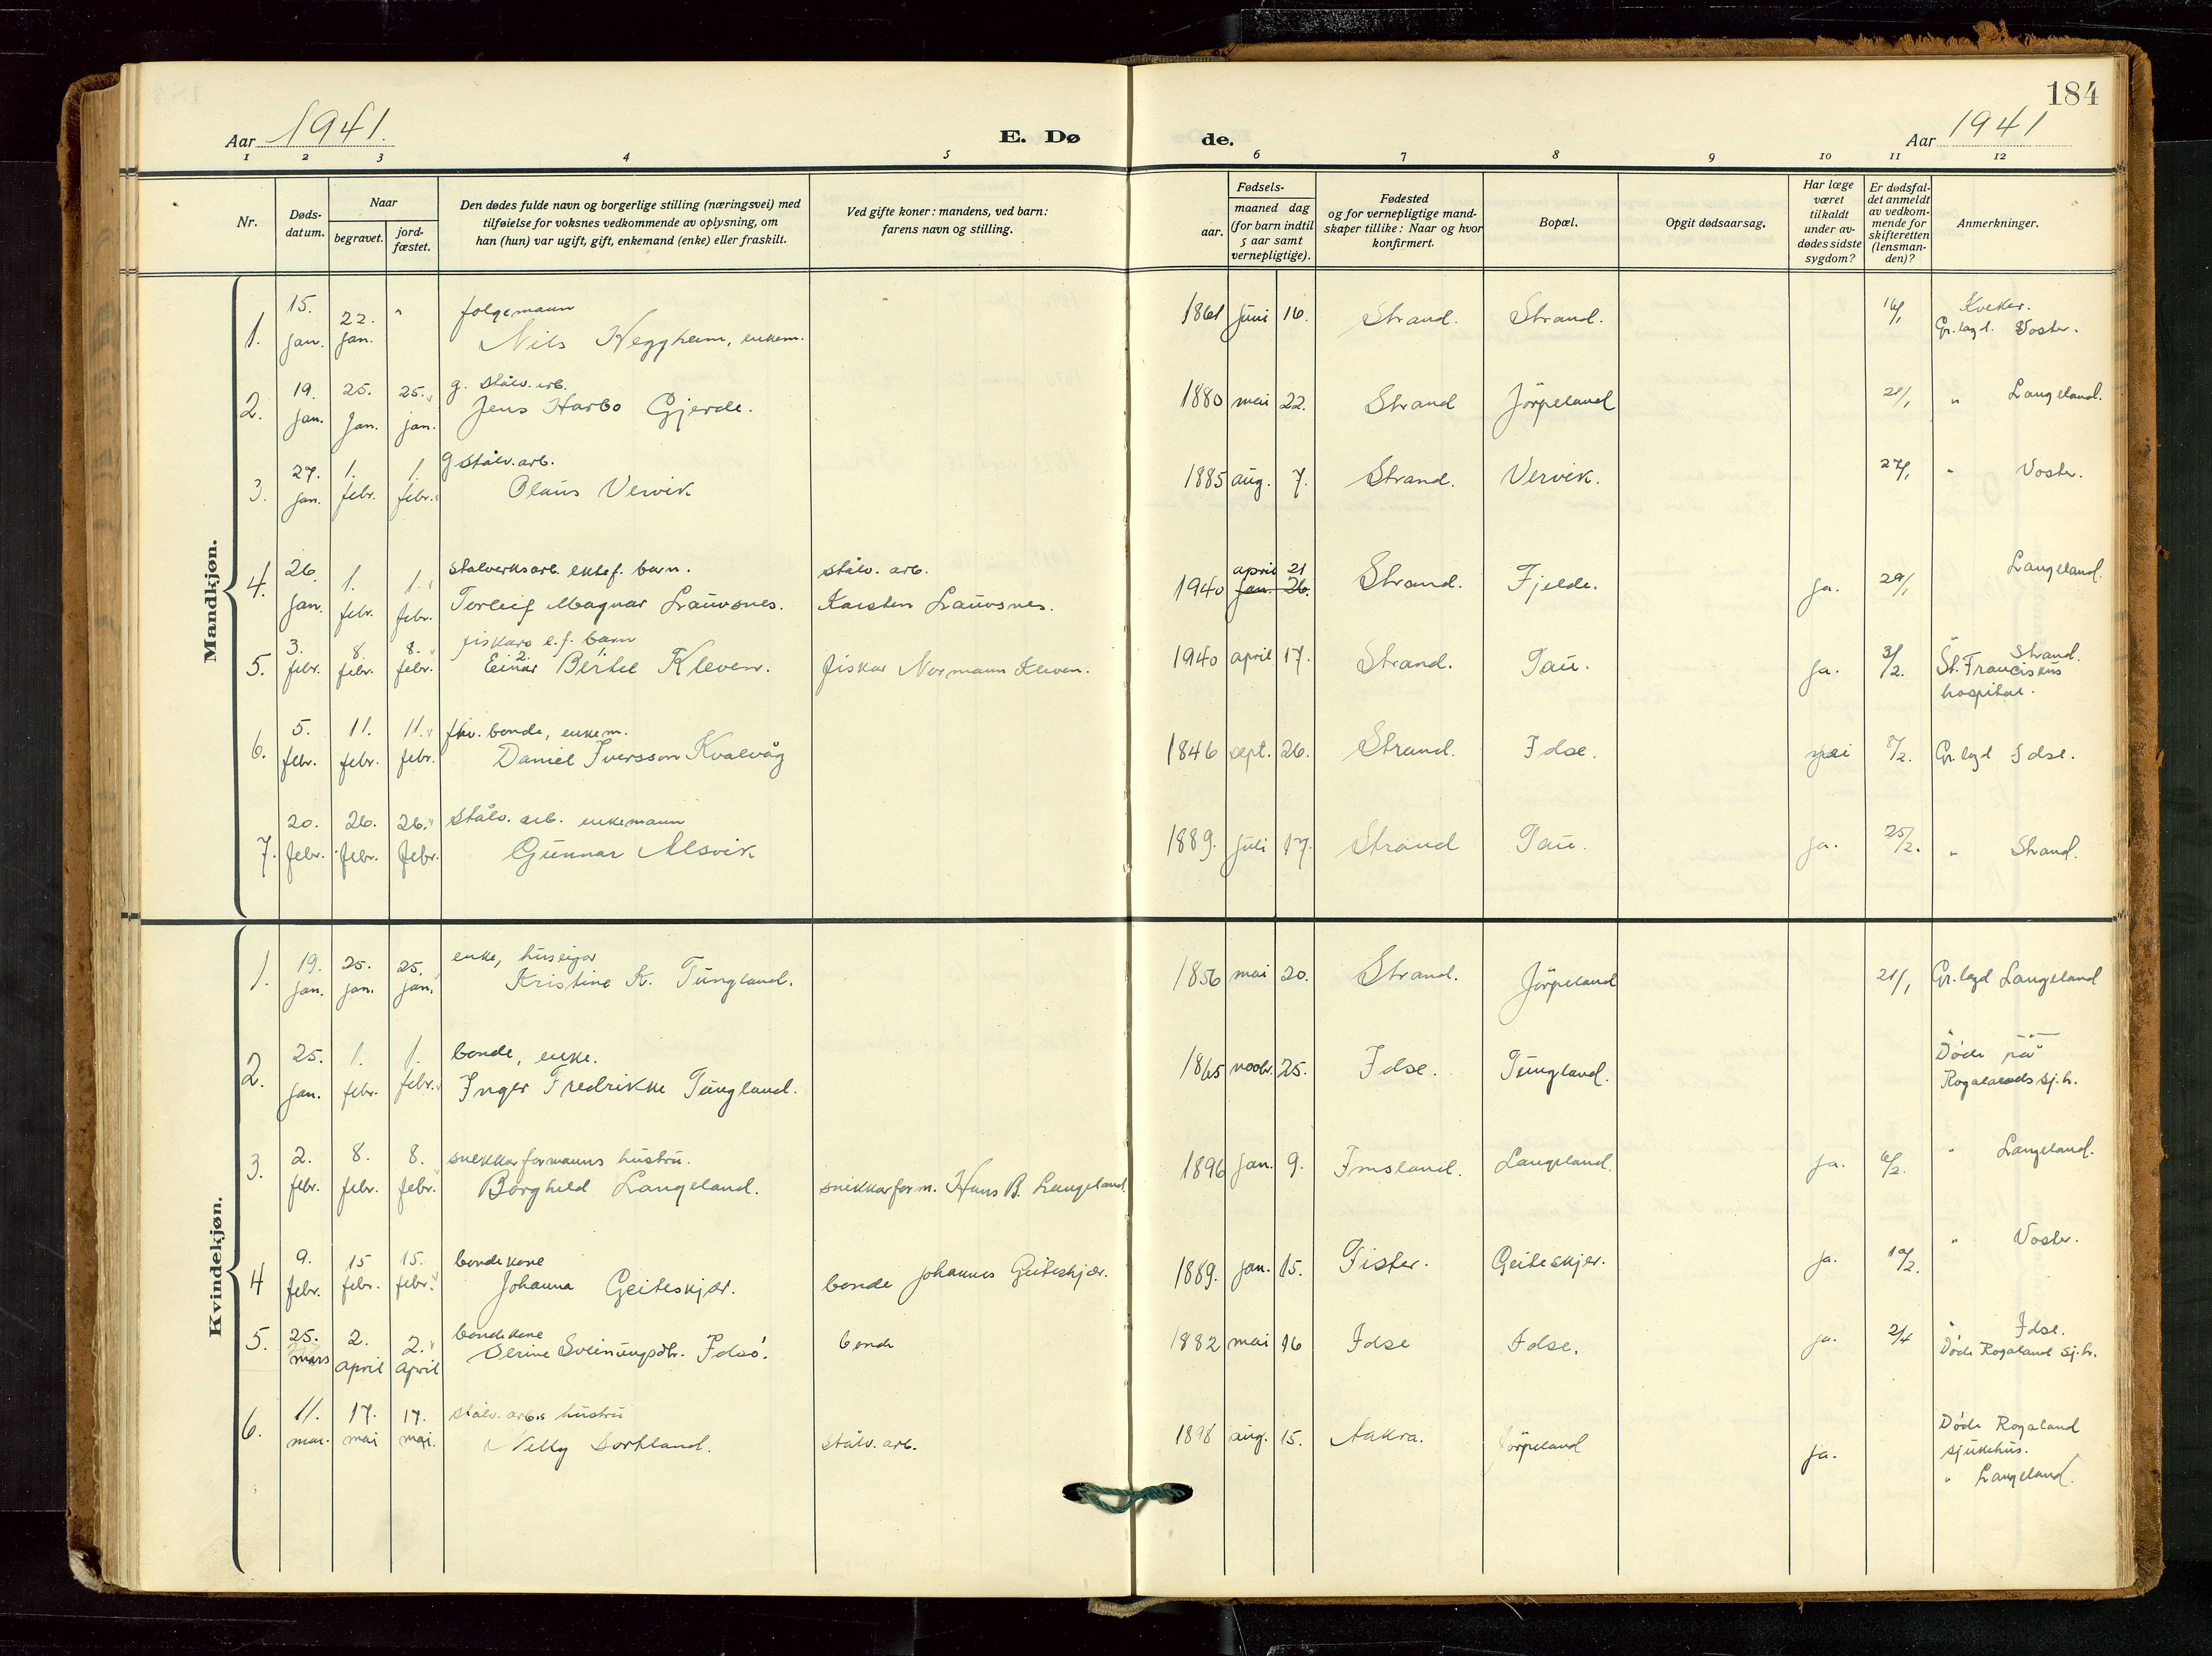 184
Aar 1941.
E. Døde.
Aar 1941
1 2 3 4 5 6 7 8 9 10 11 12
Nr.
Døds-
datum.
Naar
begravet.
jord-
fæstet.
Den dødes fulde navn og borgerlige stilling (næringsvei) med
tilføielse for voksnes vedkommende av oplysning, om
han (hun) var ugift, gift, enkemand (enke) eller fraskilt.
Ved gifte koner: mandens, ved barn:
farens navn og stilling.
Fødsels-
aar.
maaned dag
(for barn indtil
5 aar samt
vernepligtige).
Fødested
og for vernepligtige mand-
skaper tillike: Naar og hvor
konfirmert.
Bopæl.
Opgit dødsaarsag.
Har læge
været
tilkaldt
under av-
dødes sidste
sygdom?
Er dødsfal-
det anmeldt
av vedkom-
mende for
skifteretten
(lensman-
den)?
Anmerkninger.
Mandkjøn.
1. 15. jan. 22. jan. " folgemann
Nils Heggheim, enkem. 1861 juni 16. Strand. Strand. 16/1 Kveker.
Gr. lagd. Voster.
2. 19. jan. 25. jan. 25. jan. g. stålv. arb.
Jens Harbo Gjerde. 1880 mai 22. Strand Jörpeland 21/1 " Langeland.
3. 27. jan. 1. febr. 1. febr. g stålv. arb.
Olaus Vervik 1885 aug. 7. Strand. Vervik. 27/1 " Voster.
4. 26. jan. 1. febr. 1. febr. stalverksarb. ektef. barn. stålv. arb. april 21
Torleif Magnar Lauvsnes. Karsten Lauvsnes. 1940 jan. 26. Strand. Fjelde. ja. 29/1 Langeland.
5. 3. febr. 8. febr. 8. febr. fiskars e.f. barn
2. 1.
Einar Bertel Kleven. fiskar Normann Kleven. 1940 april 17. Strand. Tau. ja. 3/2. " Strand.
St. Franciskus
hospital.
6. 5. febr. 11. febr. 11. febr. fhv. bonde, enkem.
Daniel Iversson Kvalvåg 1846 sept. 26. Strand. Idse. nei 8/2. Gr. lagd Idse.
7. 20. febr. 26. febr. 26. febr. stålv. arb. enkemann
Gunnar Alsvik 1889. juli 17. Strand Tau. ja. 25/2. " Strand.
Kvindekjøn.
1. 19. jan. 25. jan. 25. jan. enke, huseigar
Kristine K. Tungland. 1856 mai 20. Strand. Jörpeland 21/1 Gr. lagd Langeland
2. 25. jan. 1. febr. 1. febr. bonde, enke.
Inger Fredrikke Tungland. 1865 novbr. 25. Idse. Tungland. "
Döde på
Rogalands sj.h.
3. 2. febr. 8. febr. 8. febr. snekkarformanns hustru.
Borghild Langeland. snekkarform. Hans B. Langeland 1896 jan. 9. Imsland. Langeland. ja. 6/2. " Langeland.
4 9. febr. 15 febr. 15. febr. bondekone
Johanna Geiteskjær. bonde Johannes Geiteskjær. 1889. jan. 15. Fister. Geiteskjer. ja. 10/2. " Voster.
5. 25. mars 2. april 2. april bondekone
Serine Sveinungsdtr. Idsö. bonde 1882 mai 16 Idse Idse. ja. 2/4 " Idse.
Döde Rogaland sj.h.
6. 11. mai. 17. mai 17. mai. stålv. arb.s hustru
Nelly Sortland. stålv. arb. 1898 aug. 15. Aakra. Jörpeland ja. Döde Rogaland
sjukehus.
" Langeland.